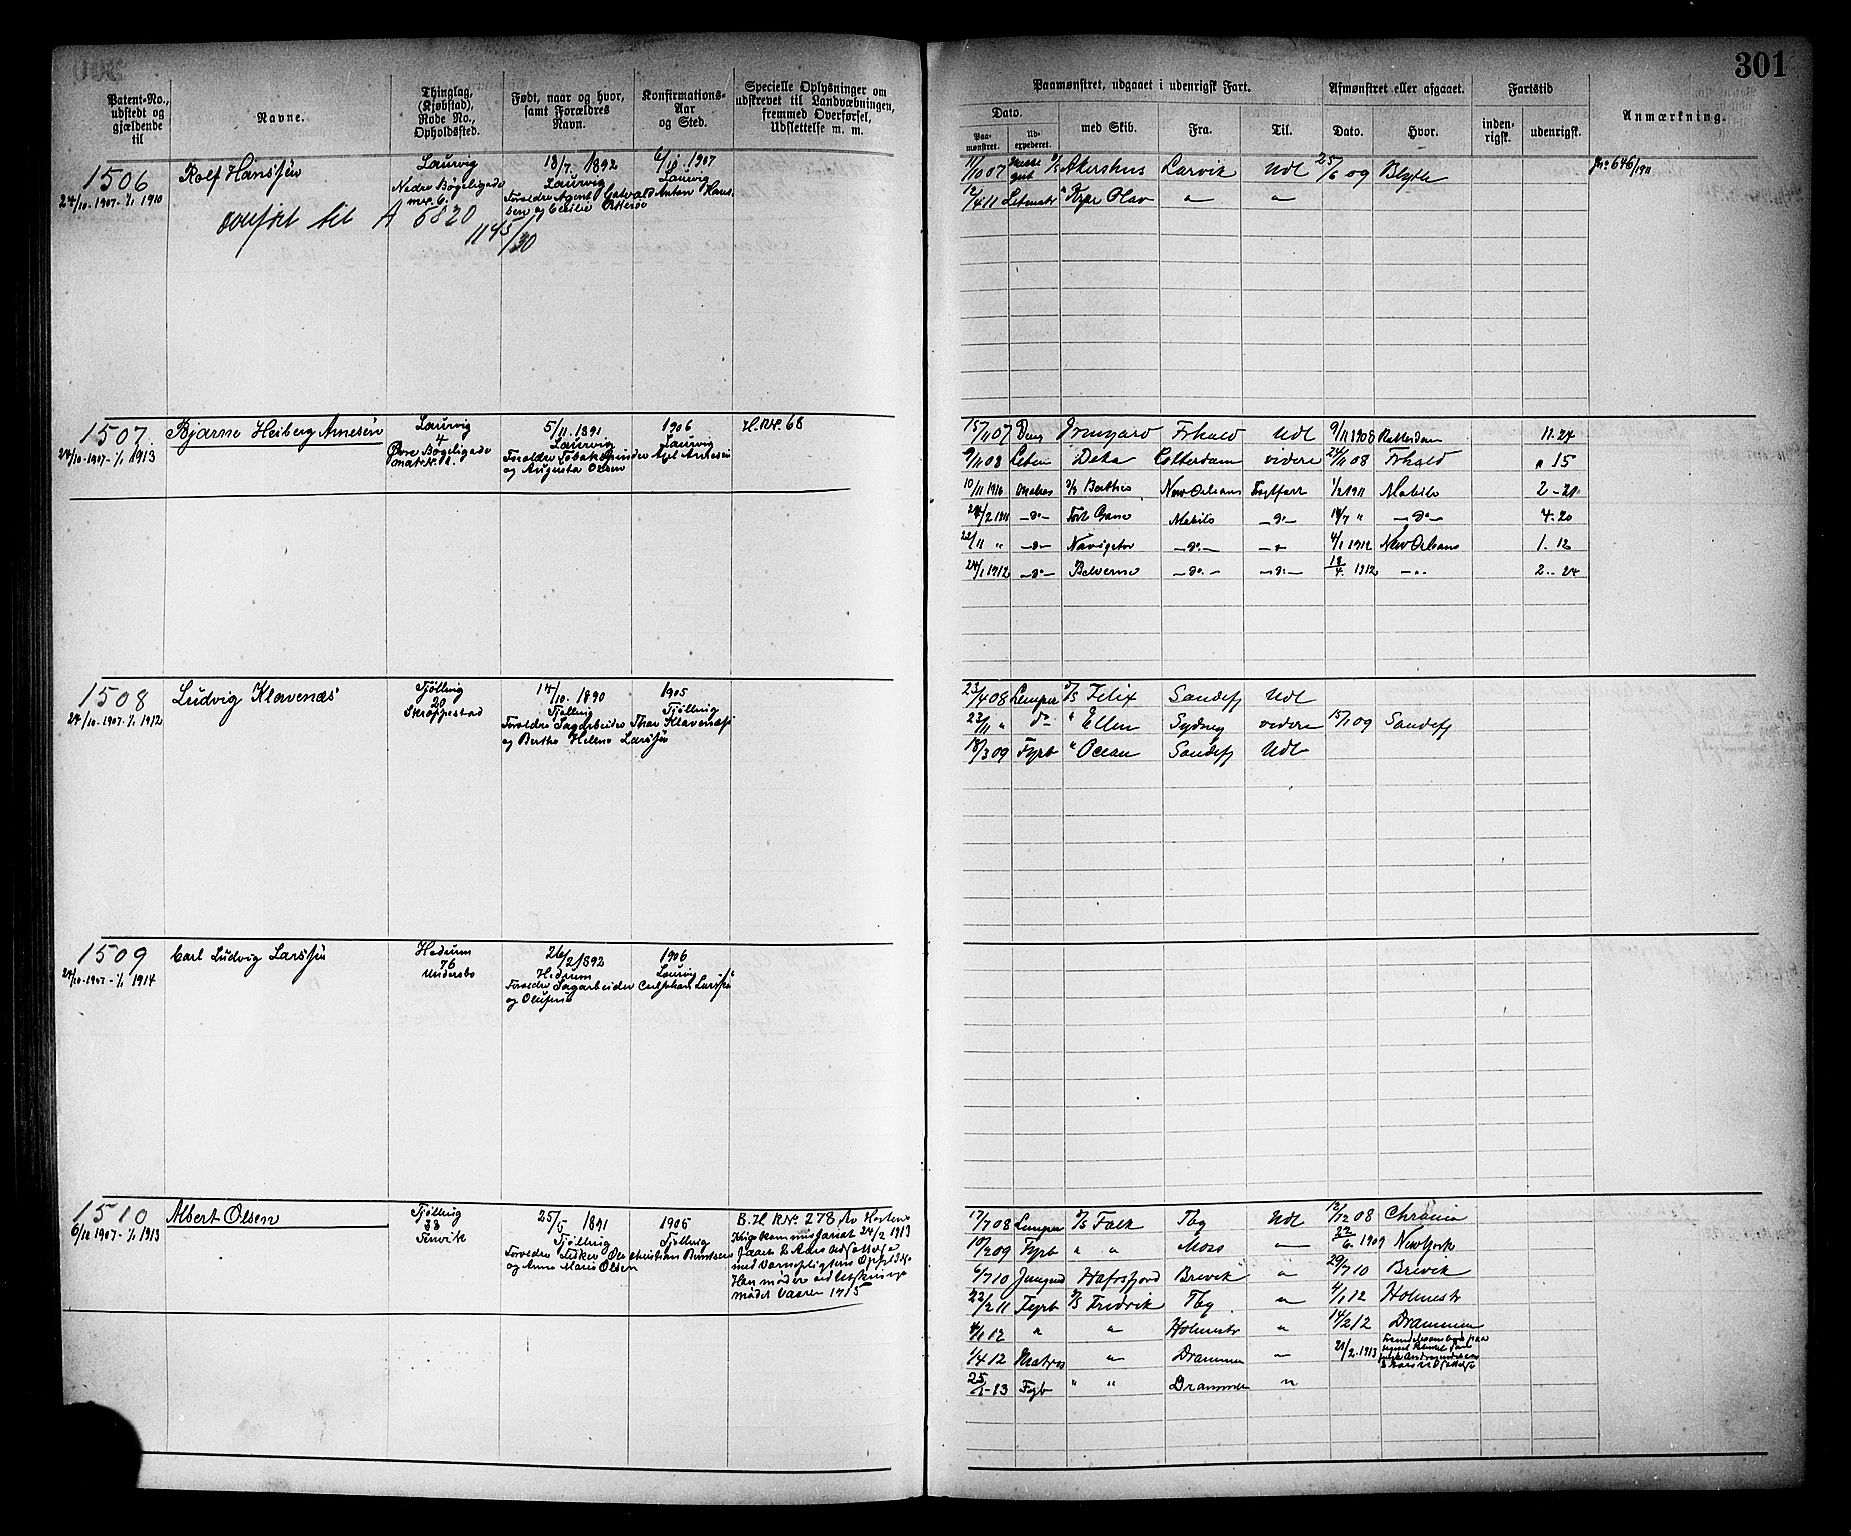 301
Patent-No., udstedt og gjældende til
Navne.
Thinglag, (Kjøbstad), Rode No., Opholdssted.
Født, naar og hvor, samt Forældres Navn.
Konfirmations-Aar og Sted.
Specielle Oplysninger om udskrevet til Landvæbningen, fremmed Overførsel, Udslettelse m. m.
Paamønstret, udgaaet i udenrigsk Fart.
Dato.
Paa-mønstret.
Ud-expederet.
med Skib.
Fra.
Til.
Afmønstret eller afgaaet.
Dato.
Hvor.
Fartstid
inden-rigsk.
udenrigsk.
Anmærkning.
1506
24/10-1907-1/1 1910
Rolf Hanssen
Laurvig
Nedre Bøgeligade
18/7. 1892
Laurvig
Forældre Agent Anton Hans-
sen og Cecilie
6/10.1907
Laurvig
overført til A 6820
1145/30
11/10 07 A/S Akershus Larvik Udl 25/6 09 Blyth
12/4 11 " Kong Olav " "
No 646/1911
1507
24/10-1907-1/1 1913
Bjarne Heiberg Arnesen
Laurvig
4
Øvre Bøgeligade
5/11.1891
Laurvig
Forældre Tobakspinder Axel Arnesen
og Augusta Olsen
1906
Laurvig
H.R.No. 68
15/11 07 Dæg Irmgard Frhald Udl 9/11 1908 Rotterdam 11.24
9/11 08 Delta Rotterdam videre 24/11 08 Frhald " 15
10/11 1910 Matros New Orleans 1/2 1911 Mobile 2-21
24/2 1911 -do- Mobile -do- 14/7 " -do- 4.20
22/11 " -do- Navigator -do- -do- 4/1 1912 New Orleans 1.12
24/1 1912 -do- Belverno -do- -do- 18/4. 1912 -"- 2.-24
1508
24/10-1907-1/1 1912
Ludvig Klavenæs
Tjølling
20
Skreppestad
14/10. 1890
Tjølling
Forældre Sagarbeider Thor Klavenæs
og Berthe Helene Larssen
1905
Tjølling
23/4 08 Lemper D/S Felix Sandefj Udl
22/11 " do " Ellen Sydney videre 15/1 09 Sandefj
18/3 09 Fyrb " Ocean Sandefj Udl
1509
24/10-1907-1/1 1914
Carl Ludvig Larssen
Hedrum
76
Undersbo
26/2 1892
Hedrum
Forældre Sagarbeider Carl Johan Larssen
og Olufine
1906
Laurvig
1510
6/12 1907-1/1 1913
Albert Olsen
Tjølling
33
Tenvik
25/5 1891
Tjølling
Forældre Fisker Ole Christian Berntsen
og Anne Marie Olsen
1906
Tjølling
B.H.R.No. 278 Av Hortens
Krigskommissariat 24/2 1913
faaet 2 Aars Udsættelse
med Værnepligtens Opfyldelse
Han møder ved Udskrivnings
mødet Vaaren 1915
17/7 08 Lemper D/S Falk Tbg Udl 12/12 08 Chrania
10/2 09 Fyrb " " Moss " 22/6. 1909 New York
6/7 10 Jungmd Hafrsfjord Brevik " 29/7 10 Brevik
22/2 11 Fyrb D/S Fredrik Tbg " 4/1 12 Holmestr
4/1 12 " " Holmestr " 14/2 12 Drammen
1/4 12 Matros " Drammen " 21/2.1913
25/1-13 Fyrb " " Drammen "